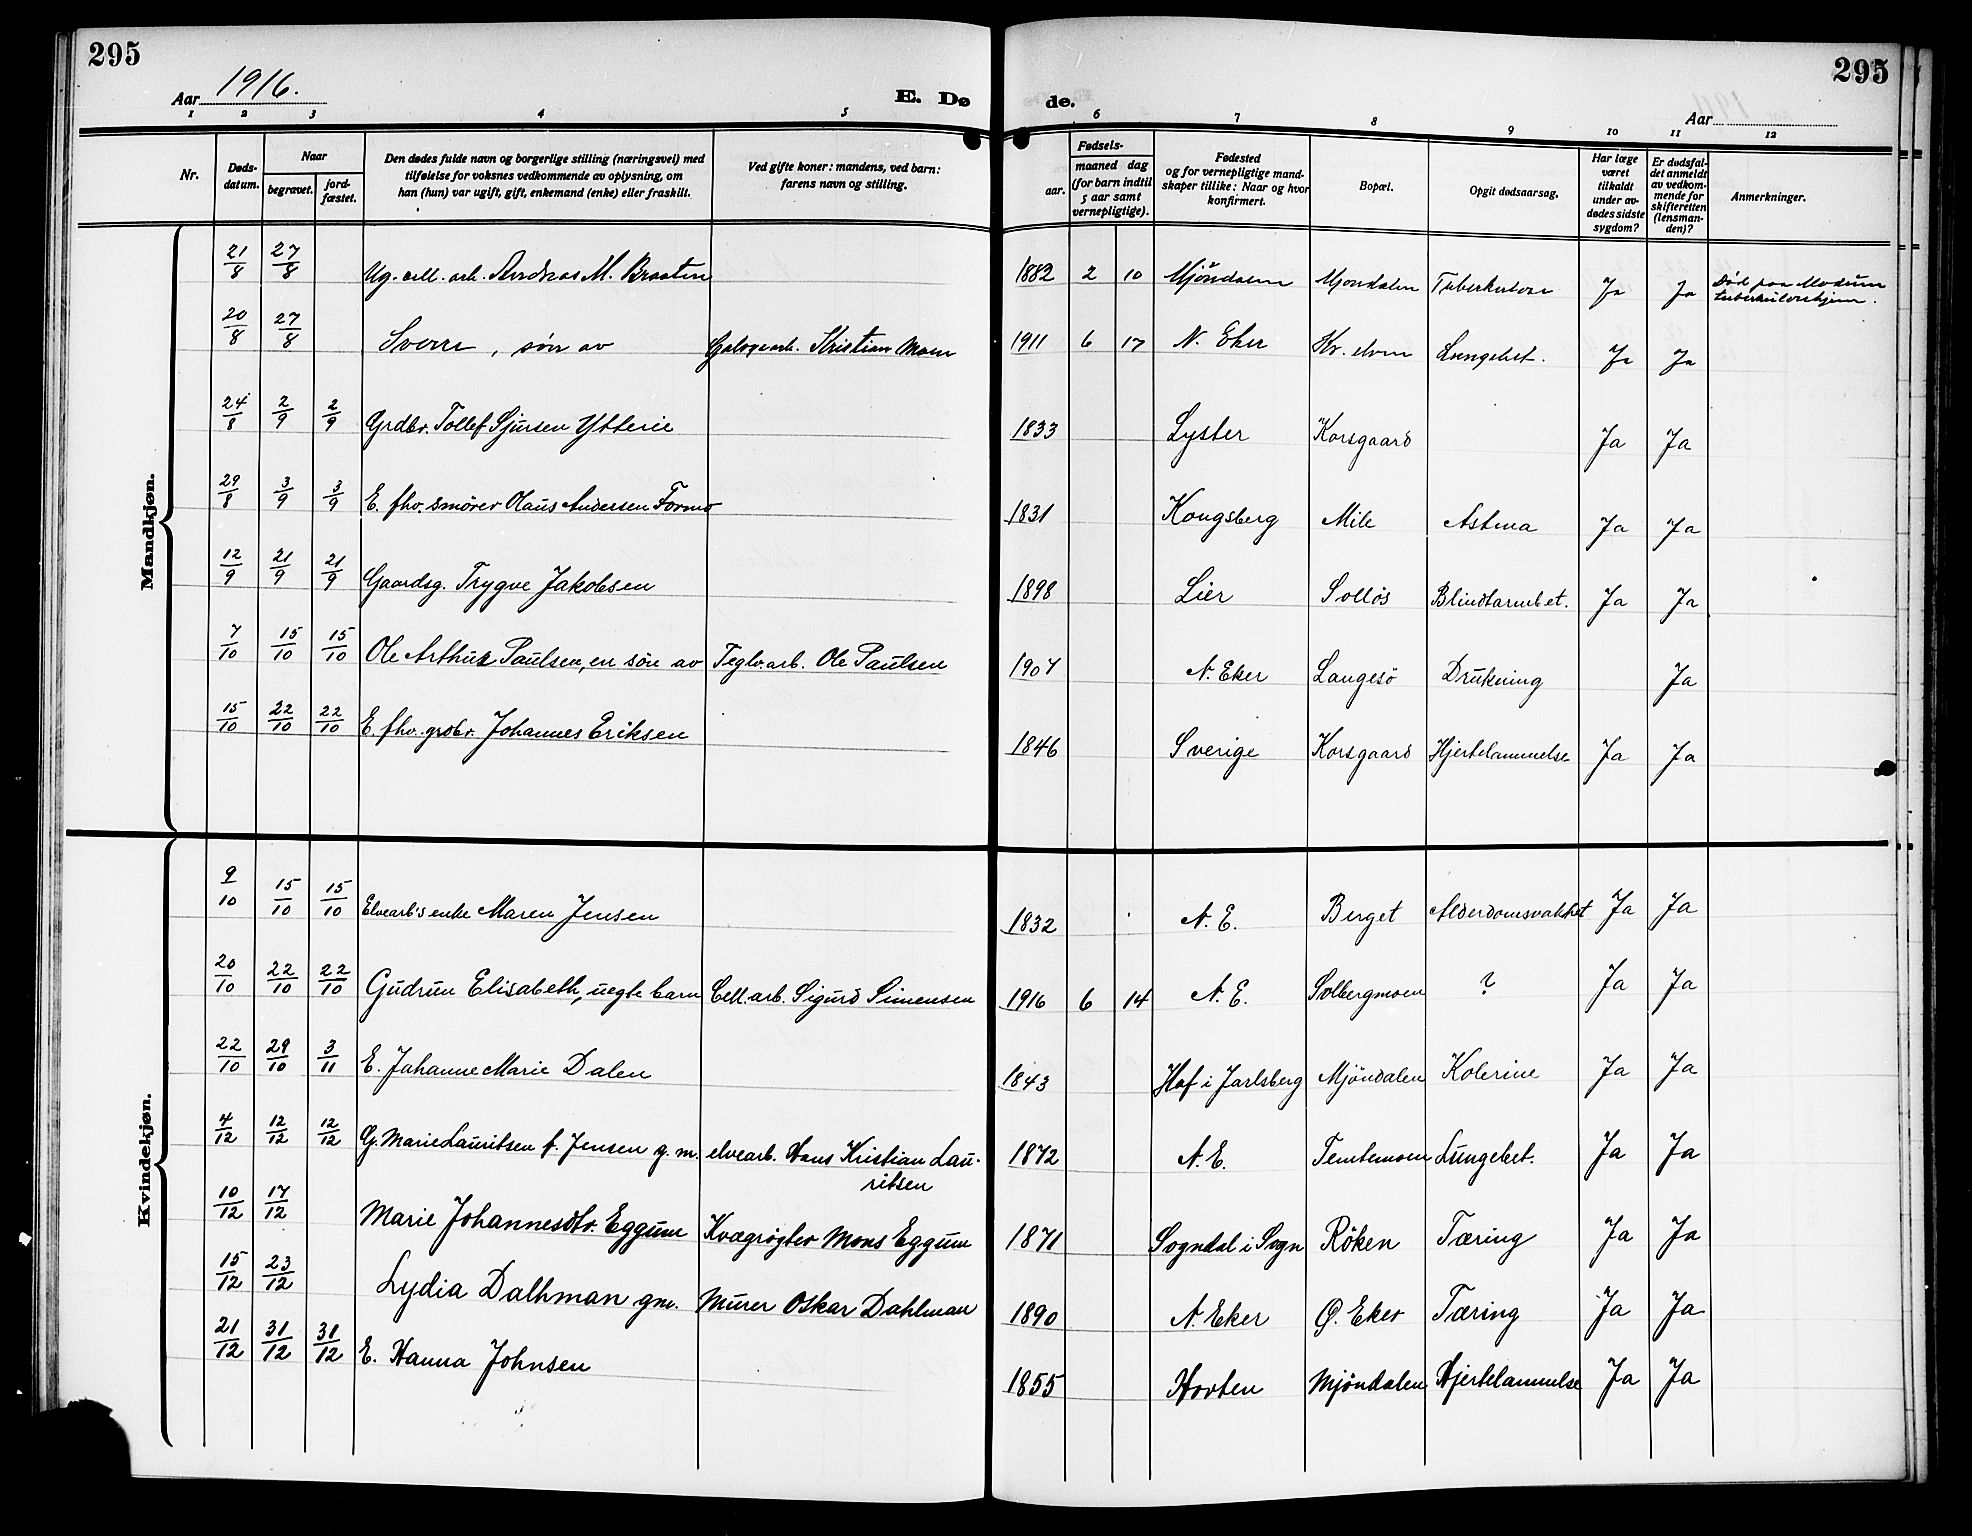 295
295
Aar 1916.
E. Dø
de.
Aar
1 2 3 4 5 6 7 8 9 10 11 12
Nr.
Døds-
datum.
Naar
begravet.
jord-
fæstet.
Den dødes fulde navn og borgerlige stilling (næringsvei) med
tilføielse for voksnes vedkommende av oplysning, om
han (hun) var ugift, gift, enkemand (enke) eller fraskilt.
Ved gifte koner: mandens, ved barn:
farens navn og stilling.
Fødsels-
aar.
maaned dag
(for barn indtil
5 aar samt
vernepligtige).
Fødested
og for vernepligtige mand-
skaper tillike: Naar og hvor
konfirmert.
Bopæl.
Opgit dødsaarsag.
Har læge
været
tilkaldt
under av-
dødes sidste
sygdom?
Er dødsfal-
det anmeldt
av vedkom-
mende for
skifteretten
(lensman-
den)?
Anmerkninger.
Mandkjøn.
21/8 27/8 Ug. cell. arb. Andreas M. Braaten 1882 2 10 Mjöndalen Mjondalen Tuberkulose Ja Ja Död paa Modum
tuberkuloschjem.
20/8 27/8 Sverre, sön av Kristian Moen 1911 6 17 N. Eker Kr. elven Lungebet. Ja Ja
24/8 2/9 2/9 Grdbr. Tollef Sjursen Ytterie 1833 Lyster Korsgaard Ja Ja
29/8 3/9 3/9 E. fhv. smörer Olaus Andersen Formo 1831 Kongsberg Mile Astma Ja Ja
12/9 21/9 21/9 Gaardsg. Trygve Jakobsen 1898 Lier Solløs Blindtarmbet. Ja Ja
7/10 15/10 15/10 Ole Arthur Paulsen, en sön av Teglv. arb. Ole Paulsen 1907 N. Eker Langesö Drukning Ja
15/10 22/10 22/10 E. fhv. grdbr. Johannes Eriksen 1846 Sverige Korsgaard Hjertelammelse Ja Ja
Kvindekjøn.
9/10 15/10 15/10 Elvearb's enke Maren Jensen 1832 N. E. Berget Alderdomsvakhet Ja Ja
20/10 22/10 22/10 Gudrun Elisabeth, uegte barn Cell. arb. Sigurd Simensen 1916 6 14 N. E. Solbergmoen ? Ja Ja
22/10 29/10 3/11 E. Johanne Marie Dalen 1843 Hof i Jarlsberg Mjöndalen Kolerine Ja Ja
4/12 12/12 12/12 G. Marie Lauritsen f. Jensen g. m. elvearb. Hans Kristian Lau-
ritsen 1872 N. E. Temtemoen Lungebet. Ja Ja
10/12 17/12 Marie Johannesdtr. Eggum Kvægrögter Mons Eggum 1871 Sogndal i Sogn Röken Tæring Ja Ja
15/12 23/12 Lydia Dalhman gm. Murer Oskar Dahlman 1890 N. Eker Ø. Eker Tæring Ja Ja
21/12 31/12 31/12 E. Hanna Johnsen 1855 Horten Mjöndalen Hjertelammelse Ja Ja